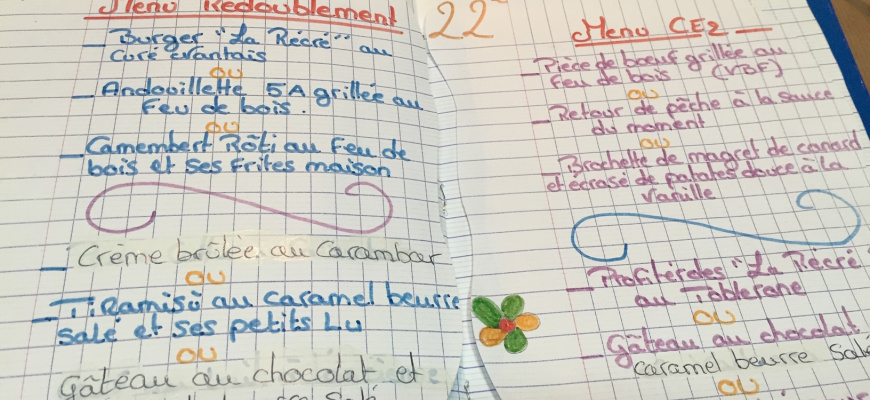 Menu Redoublement
– Burger "La Récré" au
Curé Nantais
OU
– Andouillette 5A grillée au
Feu de bois.
OU
– Camembert Rôti au Feu de
bois et ses Frites maison
– Crème brûlée au Carambar
OU
– Tiramisù au caramel beurre
salé et ses petits Lu
OU
Gâteau au chocolat et
22
Menu CE2
– Pièce de bœuf grillée au
feu de bois (VBF)
OU
– Retour de pêche à la sauce
du moment
OU
– Brochette de magret de canard
et écrasé de patates douce à la
Vanille
– Profiteroles "La Récré"
au Toblerone
OU
– Gâteau au chocolat
caramel beurre Salé
OU